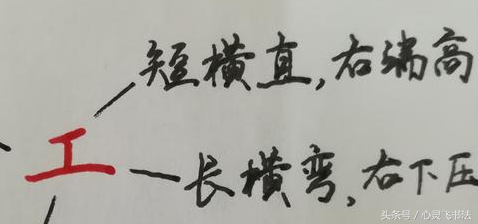 短横直,右端高
工
长横弯,右下压
头条号／心灵飞书法